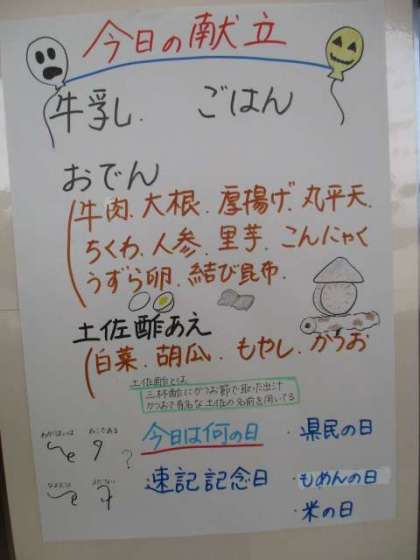 今日の献立
牛乳. ごはん
おでん
牛肉. 大根. 厚揚げ. 丸平天.
ちくわ. 人参. 里芋. こんにゃく
うずら卵. 結び昆布.
土佐酢あえ
白菜. 胡瓜. もやし. かつお
土佐酢とは
三杯酢にかつお節で取った出汁
かつおで有名な土佐の名前を用いてる
わがはいは ねこである
?
今日は何の日
・県民の日
速記記念日
・もめんの日
・米の日